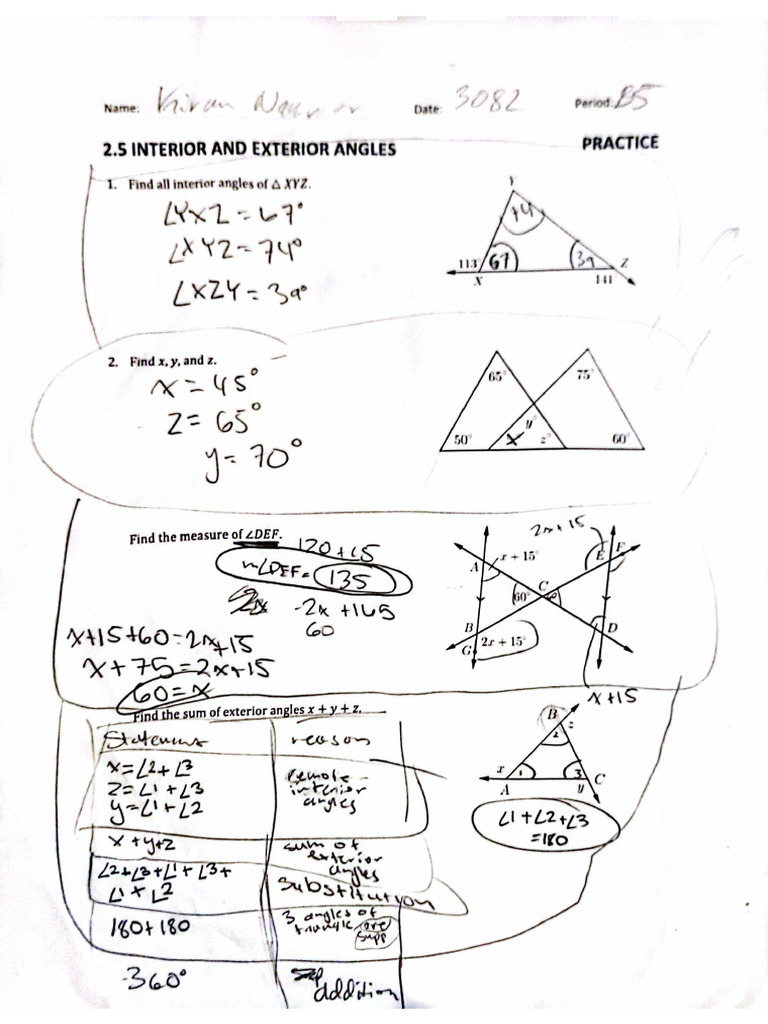 Name: Kiran
Date: 3082
Period: B5
2.5 INTERIOR AND EXTERIOR ANGLES
PRACTICE
1. Find all interior angles of △ XYZ.
∠YXZ = 67°
∠XYZ = 74°
∠XZY = 39°
Y
74
113° 67
39 Z
X
141
2. Find x, y, and z.
x = 45°
z = 65°
y = 70°
65°
75°
y°
50° x z° 60°
Find the measure of ∠DEF.
120+15
m∠DEF = 135
-2x +165
60
x+15+60=2x+15
x+75=2x+15
60=x
2x+15
E F
A x + 15°
C
60° 60
B D
G 2x + 15°
x+15
Find the sum of exterior angles x + y + z.
Statements reason
x=∠2+∠3
z=∠1+∠3
y=∠1+∠2
remote
interior
angles
x+y+z
sum of
exterior
angles
∠2+∠3+∠1+∠3+
∠1+∠2
substitution
180+180
3 angles of
triangle are
supp
360°
addition
B z
2
x 1 3 C
A y
∠1+∠2+∠3
=180